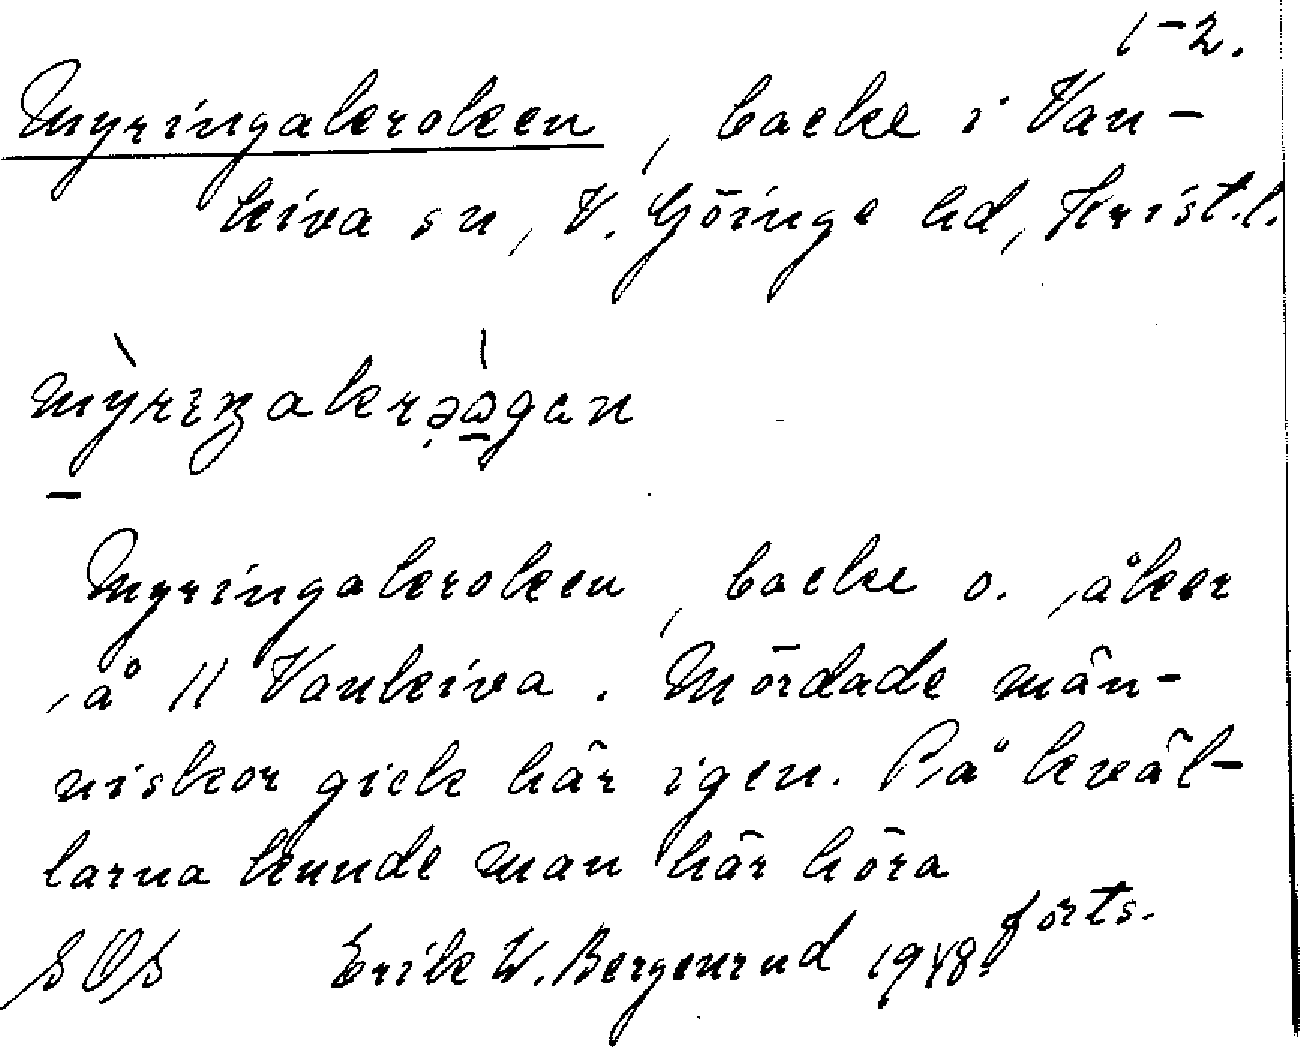 1-2.
Myringakroken, backe i Van-
kiva sn, V. Göinge hd, Krist.l.
Myringakroken, backe o. åker
å 11 Vankiva. Mördade män-
niskor gick här igen. På kväl-
larna kunde man här höra
forts.
SOS Erik W. Bergenrud 1948.